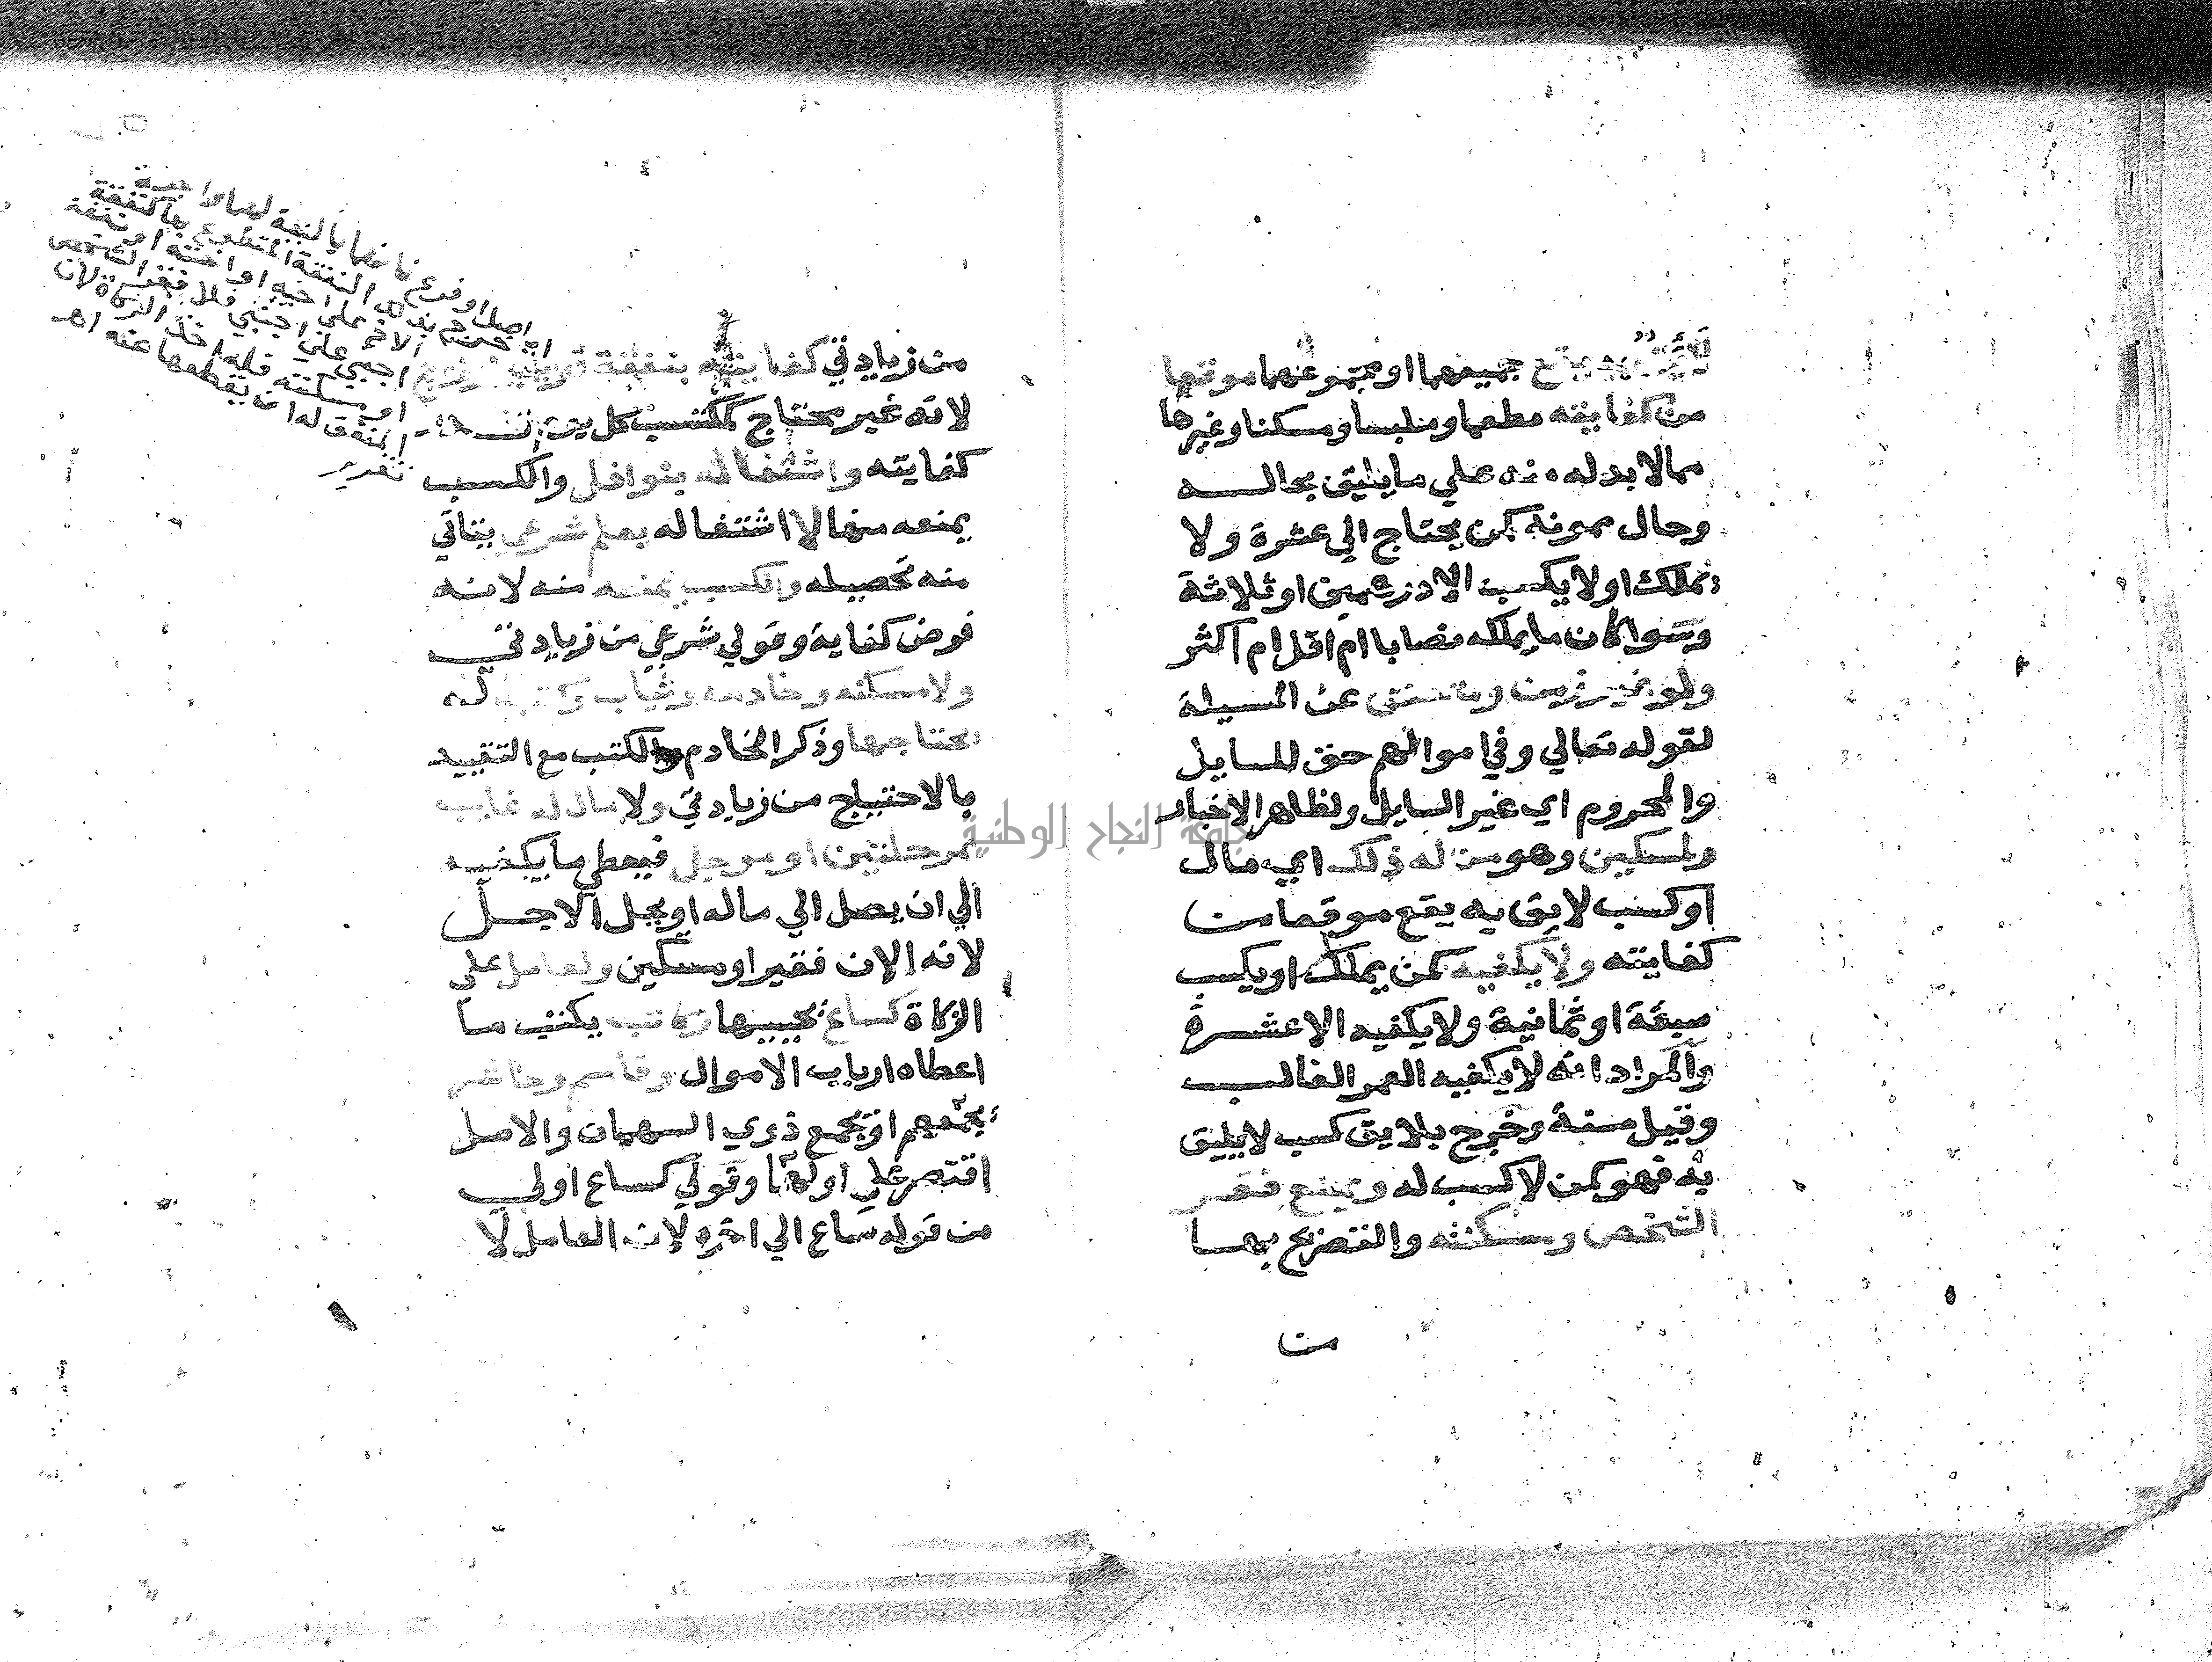 يقع جميعهما او مجموعهما موقعا
من كفايته مطعما وملبسا ومسكنا وغيرها
مما لا بد له منه علي ما يليق بحاله
وحال ممونه كمن يحتاج الي عشرة ولا
يملك او لا يكسب الا درهمين او ثلاثة
وسوا كان ما يملكه نصابا ام اقل ام اكثر
ولو غير زمن ومتعفف عن المسيلة
لقوله تعالي وفي اموالهم حق للسايل
والمحروم اي غير السايل ولظاهر الاخبار
ولمسكين وهو من له ذلك اي مال
او كسب لايق به يقع موقعا من
كفايته ولا يكفيه كمن يملك او يكسب
سبعة او ثمانية ولا يكفيه الا عشرة
والمراد انه لا يكفيه العمر الغالب
وقيل سنة وخرج بلايق كسب لا يليق
به فهو كمن لا كسب له ويمنع فقر
الشخص ومسكنته والتصريح بها
من
من زيادتي كفايته بنفقة قريب او زوج
لانه غير محتاج كمكتسب كل يوم قدر
كفايته واشتغاله بنوافل والكسب
يمنعه منها لا اشتغاله بعلم شرعي يتاتي
منه تحصيله والكسب يمنعه منه لانه
فرض كفاية وقولي شرعي من زيادتي
ولا مسكنه وخادمه وثياب وكتب له
يحتاجها وذكر الخادم والكتب مع التقييد
بالاحتياج من زيادتي ولا مال له غايب
بمرحلتين او موجل فيعطي ما يكفيه
الي ان يصل الي ماله او يحل الاجل
لانه الان فقير او مسكين ولعامل علي
الزكاة كساع يجبيها وكاتب يكتب ما
اعطاه ارباب الاموال وقاسم وحاشر
يجمعهم او يجمع ذوي السهمان والاصل
اقتصر علي اولها وقولي كساع اولي
من قوله ساع الي اخره لان العامل لا
اصل او فرع فانها بالنسبة لهما واجبة
النفقة المتطوع بها كنفقة
الاخ علي اخيه او اخته او نفقة
اجنبي علي اجنبي فلا تمنع فقر الشخص
او مسكنته فله اخذ الزكاة لان
المنفق له ان يقطعها عنه اهـ
تقرير
جامعة النجاح الوطنية